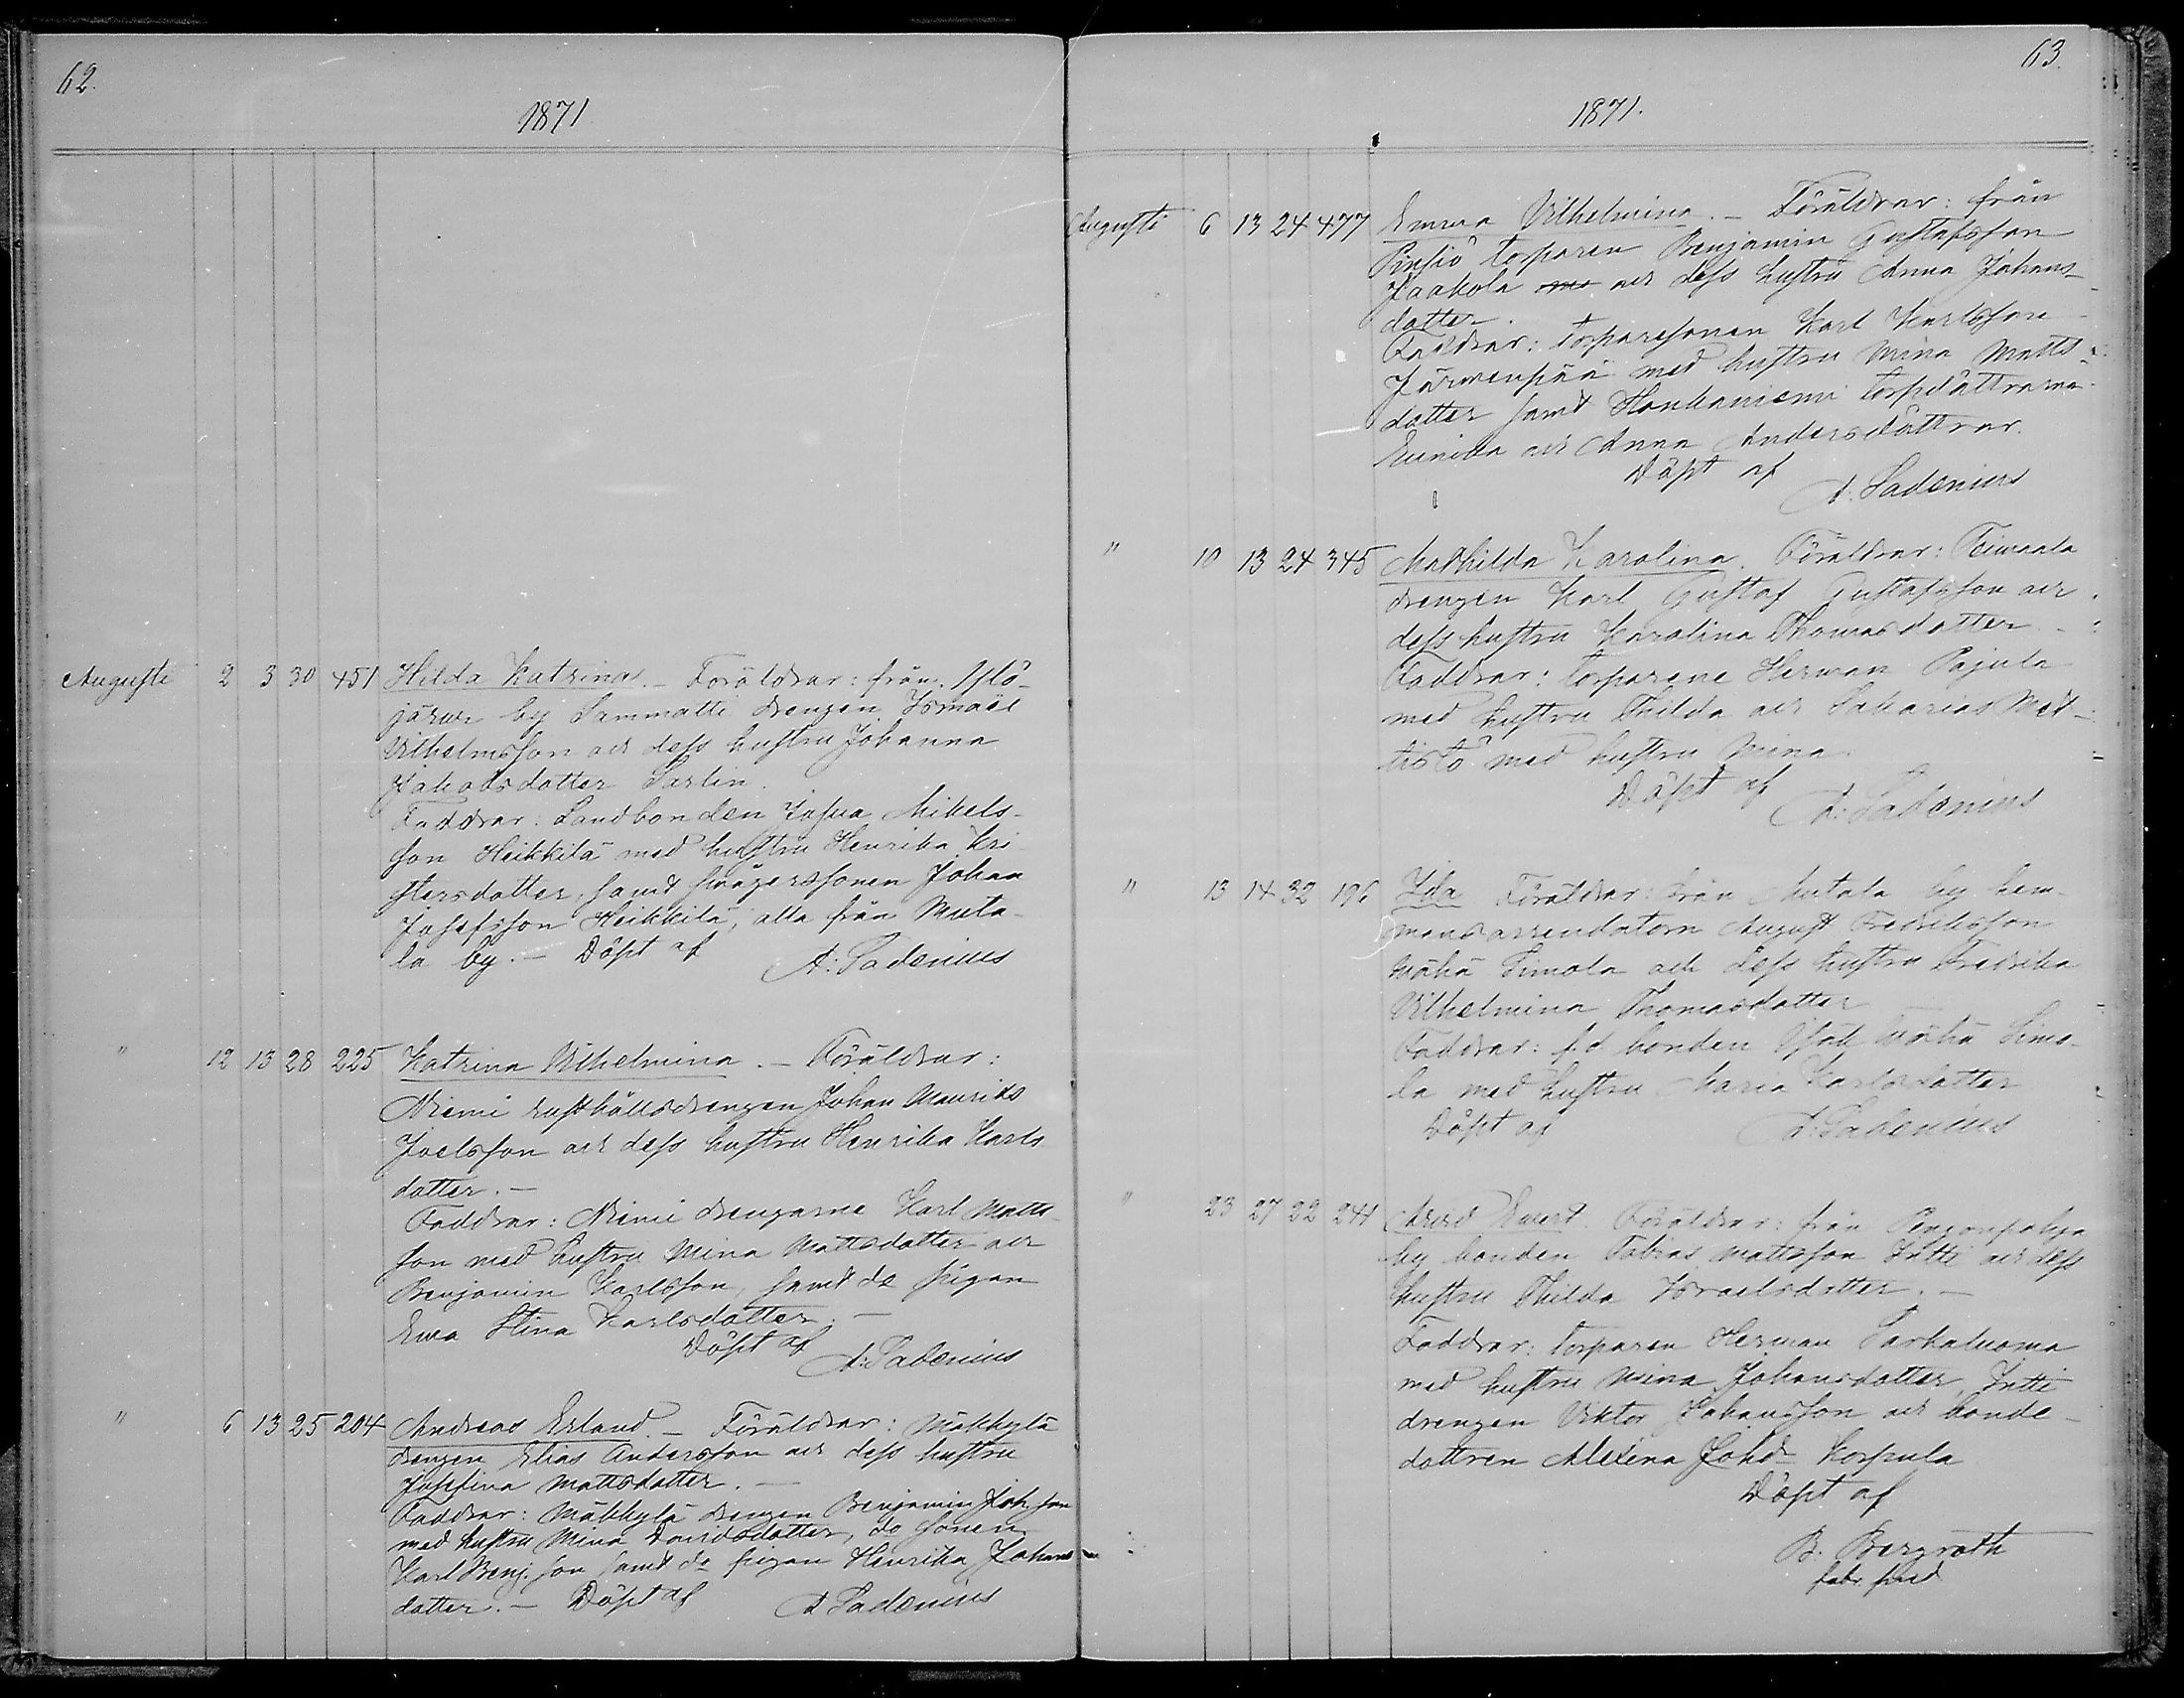 62.
1871
Augusti 2 3 30 451 Hilda Katrina. - Föräldrar: från Ylö-
järwi by Sammatti drengen Ismaël
Vilhelmsson och dess hustru Johanna
Jakobsdotter Sarlin.
Faddrar: Landbonden Josua Mikels-
son Heikkilä med hustru Henrika Kri
stersdotter, samt svägerssonen Johan
Josefsson Heikkilä, alla från Muta-
la by. - Döpt af A: Sadenius
" 12 13 28 225 Katrina Vilhelmina. - Föräldrar:
Niemi rusthållsdrengen Johan Maurits
Joelsson och dess hustru Henrika Karls
dotter. -
Faddrar: Niemi drengarne Karl Matts-
son med hustru Mina Mattsdotter och
Benjamin Karlsson, samt do pigan
Ewa Stina Karlsdotter. -
Döpt af
A: Sadenius
" 6 13 25 204 Andreas Erland. - Föräldrar: Mäkkylä
drengen Elias Andersson och dess hustru
Josefina Mattsdotter. -
Faddrar: Mäkkylä drengen Benjamin Joh. son
med hustru Mina Davidsdotter, do sonen
Karl Benj. son samt do pigan Henrika Johans-
dotter. - Döpt af A Sadenius
63.
1871.
Augusti 6 13 24 477 Emma Vilhelmina. - Föräldrar: från
Pinsiö torparen Benjamin Gustafsson
Jaakola och dess hustru Anna Johans-
dotter.
Faddrar: torparesonen Karl Karlsson
Järwenpää med hustru Mina Matts-
dotter samt Haukaniemi torpdöttrarna
Eunika och Anna Andersdöttrar.
Döpt af
A. Sadenius
" 10 13 24 345 Mathilda Karolina. Föräldrar: Teiwaala
drengen Karl Gustaf Gustafsson och
dess hustru Karolina Thomasdotter. -
Faddrar: torparene Herman Pajula
med hustru Thilda och Sakarias Met-
tistö med hustru Mina.
Döpt af
A: Sadenius
" 13 14 32 196 Ida Föräldrar: från Mutala by hem-
mansarrendatorn August Fredriksson
Wähä Simola och dess hustru Fredrika
Vilhelmina Thomasdotter
Faddrar: f.d. bonden Isak Wähä Simo-
la med hustru Maria Karlsdotter
Döpt af A: Sadenius
" 23 27 22 241 Arvid Evert. Föräldrar: från Pengonpohja
by bonden Tobias Mattsson Intti och dess
hustru Thilda Israelsdotter. -
Faddrar: torparen Herman Sarkaluoma
med hustru Mina Johansdotter, Intti
drengen Viktor Johansson och bonde-
dottren Alexina Johd. Korpula
Döpt af
B. Bergroth